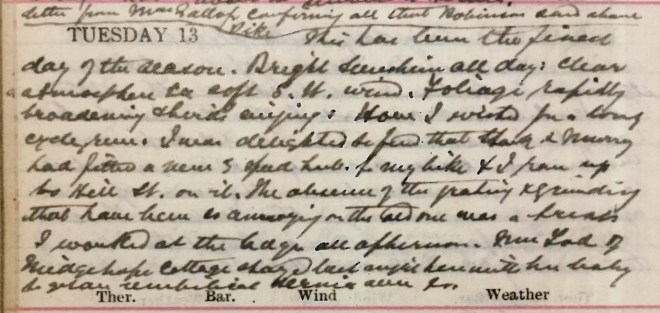 letter from Miss Gallop confirming all that Robinson said above
TUESDAY 13 This has been the finest
day of the season. Bright sunshine all day: clear
atmosphere & soft S. W. wind. Foliage rapidly
broadening & birds singing: How I wished for a long
cycle run. I was delighted to find that & Murray
had fitted a new 3 speed hub to my bike & I ran up
to Hill St. on it. The absence of the grating & grinding
that have been so annoying on the old one was a treat
I worked at the Lodge all afternoon. Mrs of
Midgehope Cottage stayed last night here with her baby
umbilical hernia
Ther. Bar. Wind Weather